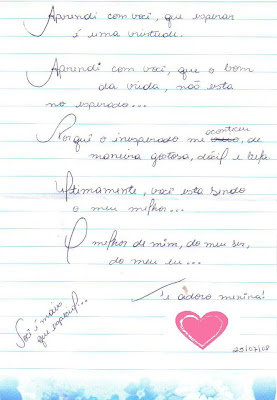 Aprendi com você, que esperar
é uma virtude.
Aprendi com você, que o bom
da vida, não esta
no esperado...
Porquê o inesperado me aconteceu, de
maneira gostosa, dócil e bela
Ultimamente, você esta sendo
o meu melhor...
O melhor de mim, do meu ser,
do meu eu...
Te adoro menina!
Você é mais
que especial...
29/07/08